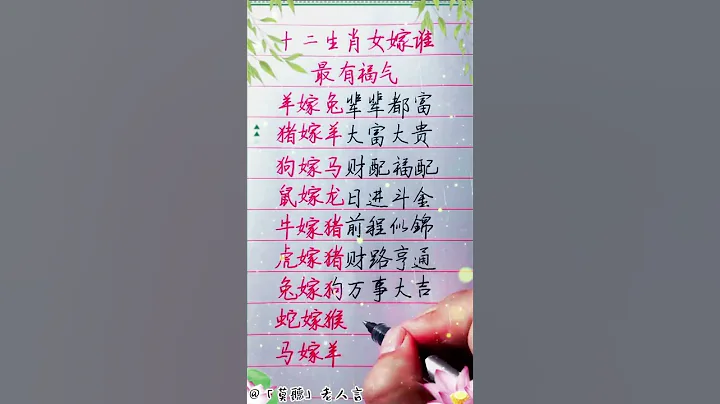 十二生肖女嫁谁
最有福气
羊嫁兔辈辈都富
猪嫁羊大富大贵
狗嫁马财配福配
鼠嫁龙日进斗金
牛嫁猪前程似錦
虎嫁猪财路亨通
兔嫁狗万事大吉
蛇嫁猴
马嫁羊
@「莫聽」老人言